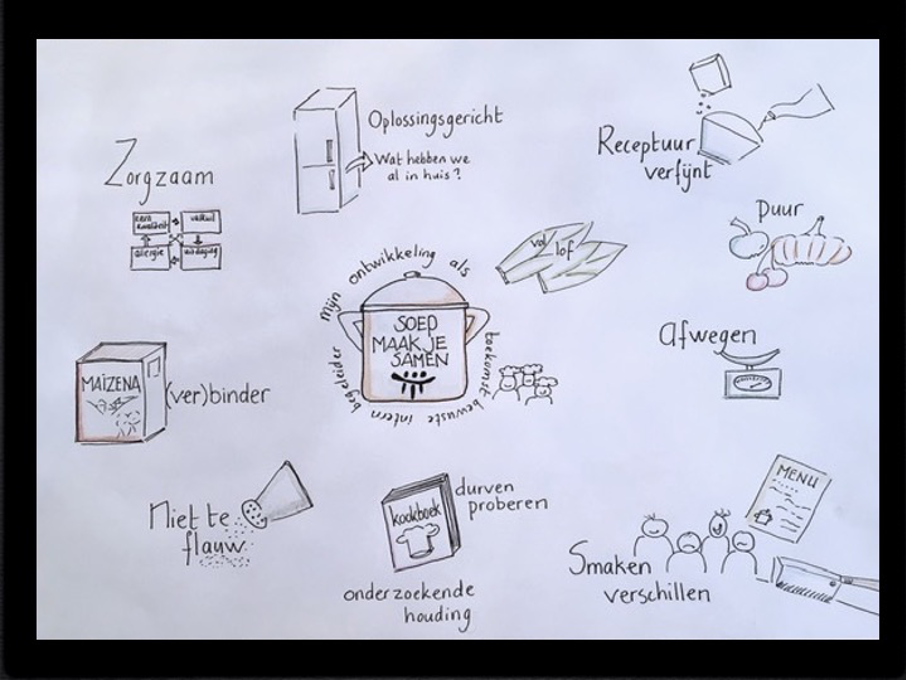 Oplossingsgericht
Wat hebben we
al in huis?
Receptuur
verfijnt
Zorgzaam
kern
kwaliteit
valkuil
allergie
uitdaging
Puur
vol lof
mijn ontwikkeling als
toekomst bewuste intern begeleider
SOEP
MAAK JE
SAMEN
afwegen
MAÏZENA
(ver)binder
Niet te
flauw
kookboek
durven
proberen
onderzoekende
houding
MENU
Smaken
verschillen